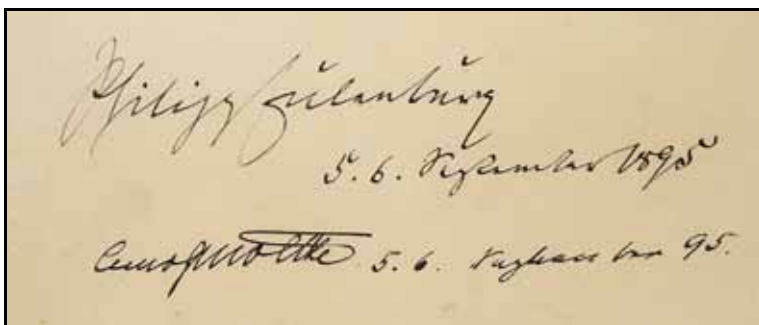 Philipp Eulenburg
5. 6. September 1895
Moltke 5. 6. September 95.